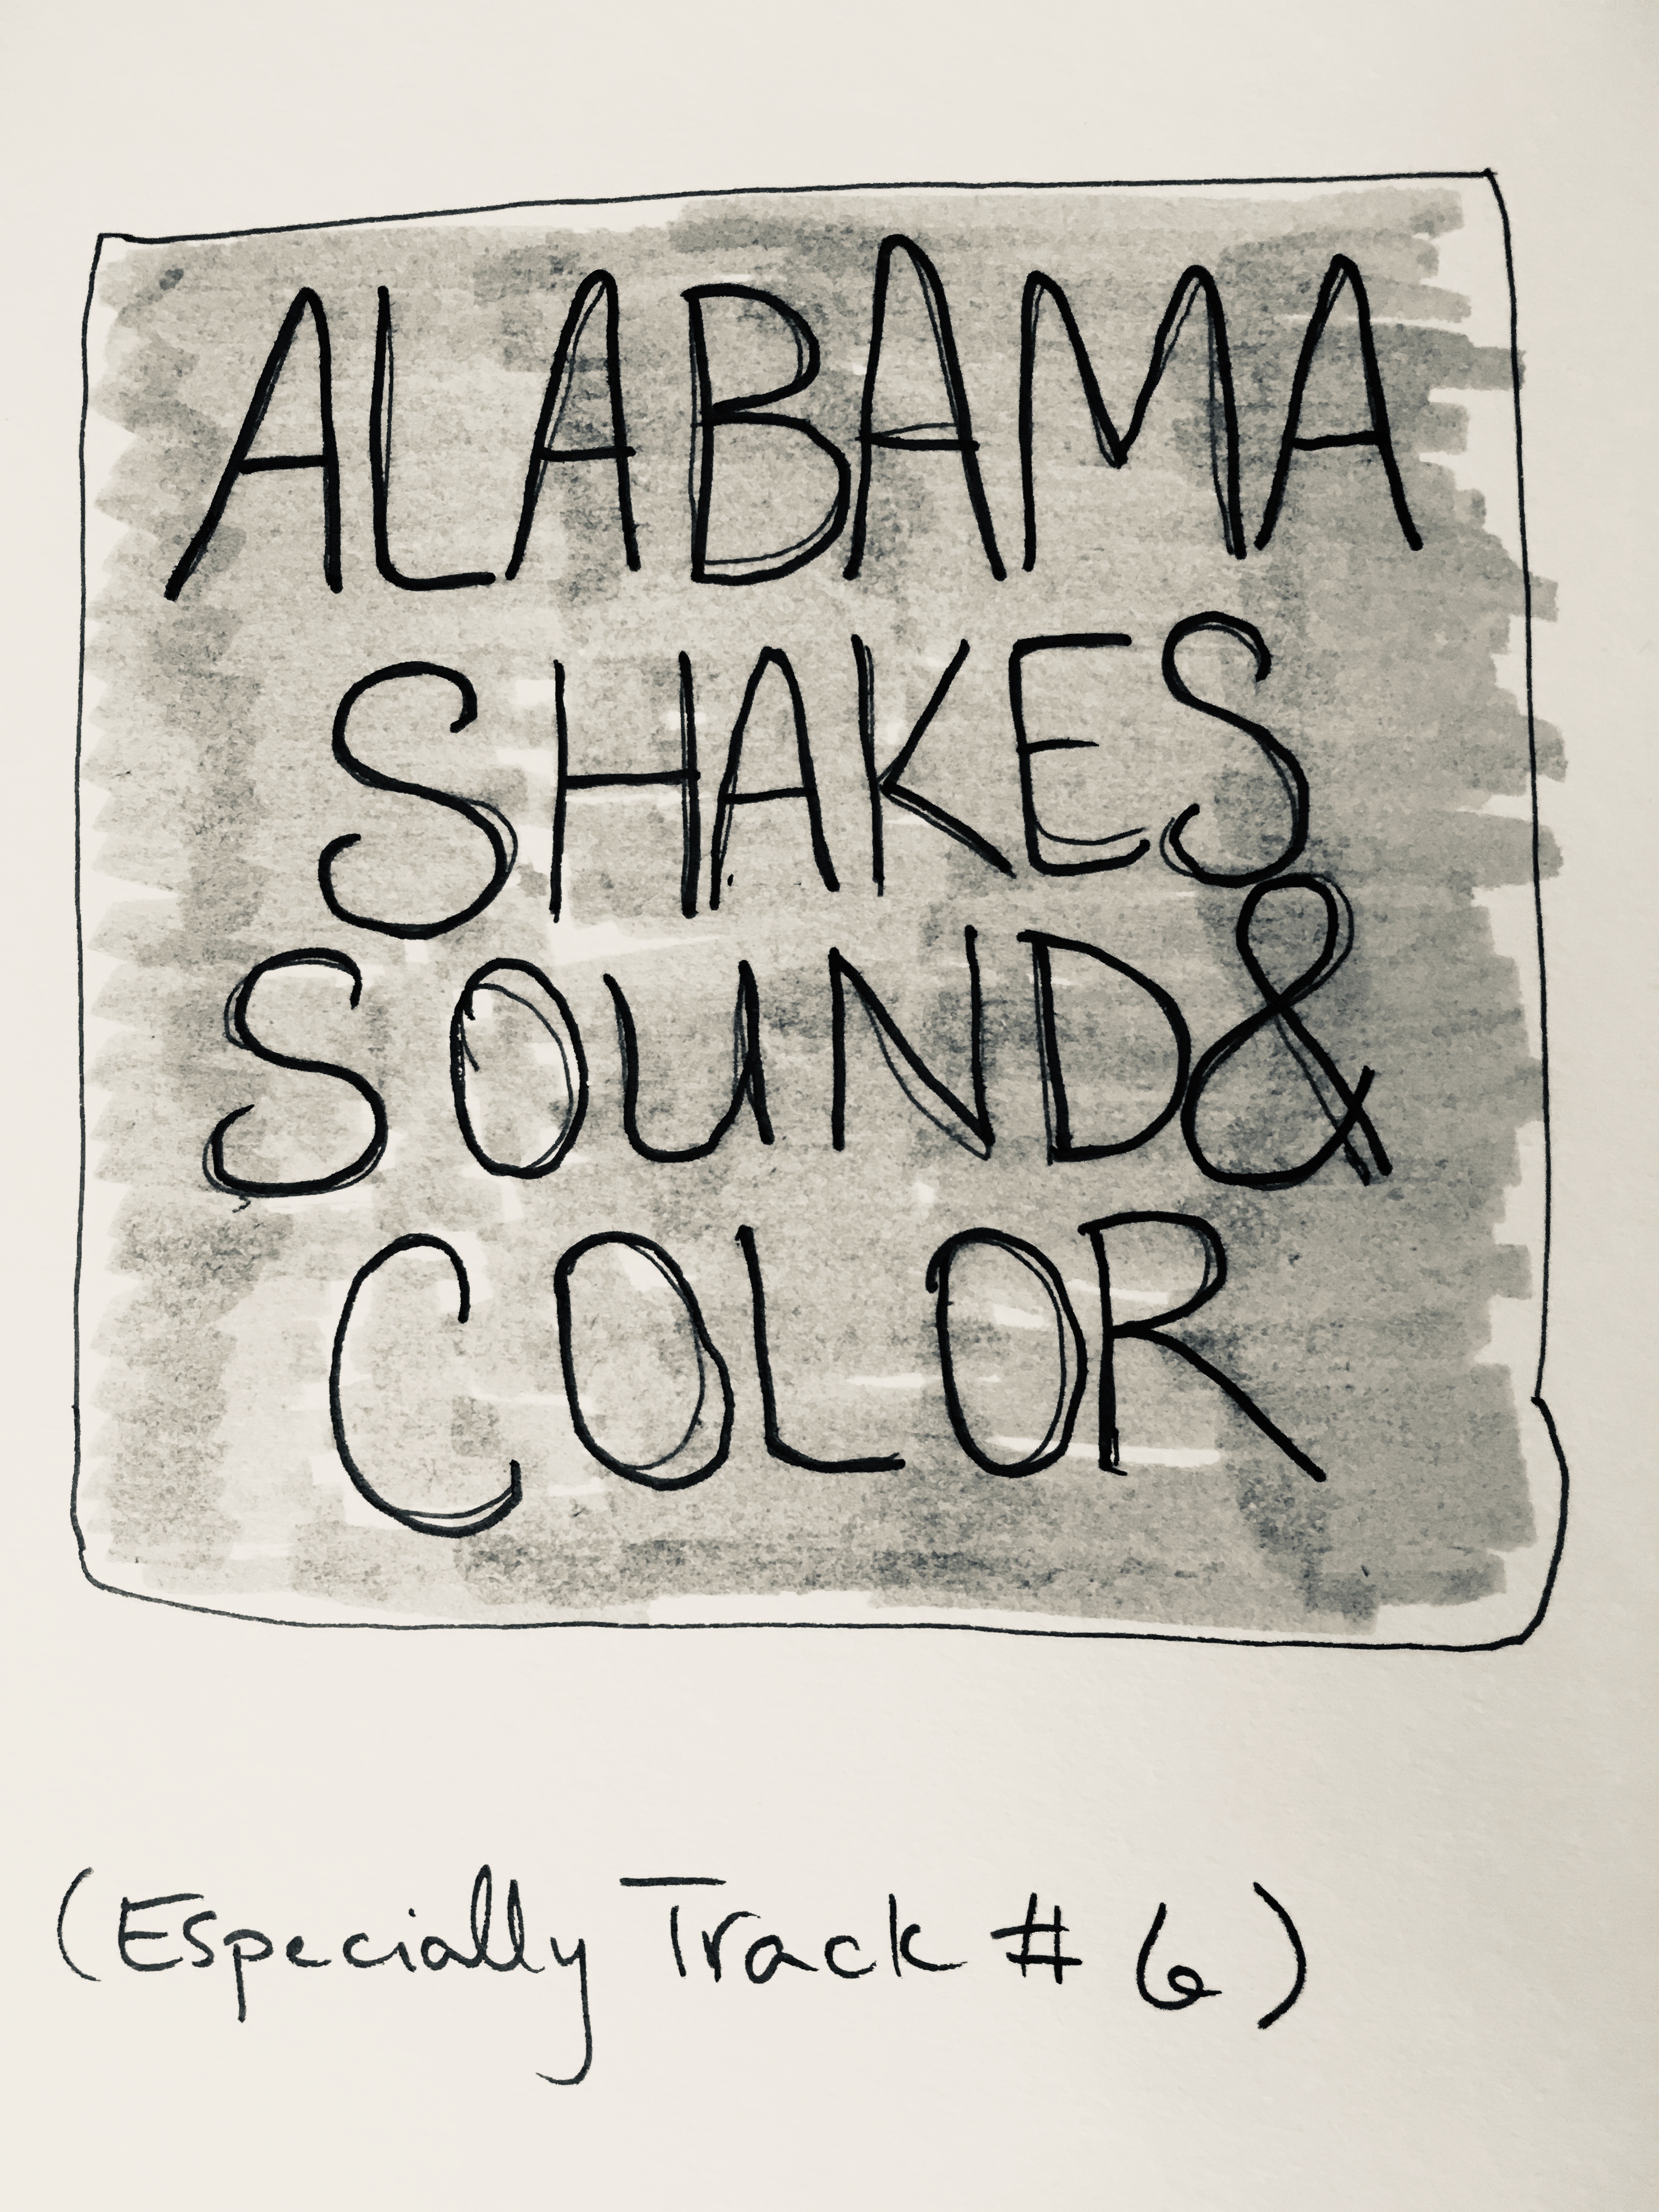 ALABAMA
SHAKES
SOUND &
COLOR
(Especially Track # 6)